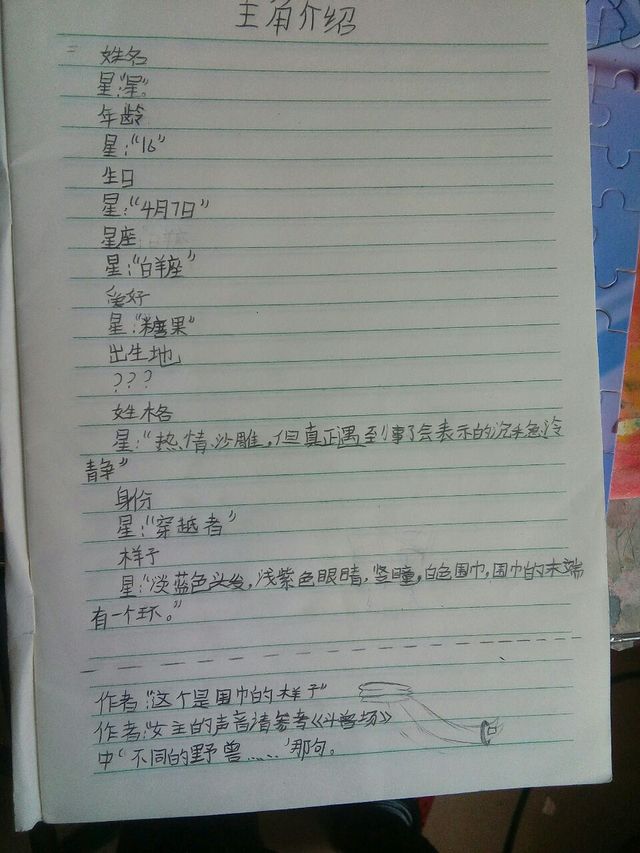 主角介绍
姓名
星:"星"。
年龄
星:"16"
生日
星:"4月7日"
星座
星:"白羊座"
爱好
星:"糖果"
出生地
???
姓格
星:"热情,沙雕,但真正遇到事了会表示的沉着冷
静"
身份
星:"穿越者"
样子
星:"淡蓝色头发,浅紫色眼睛,竖瞳,白色围巾,围巾的末端
有一个环。"
作者:"这个是围巾的样子"
作者:女主的声音请参考《斗兽场》
中'不同的野兽……'那句。